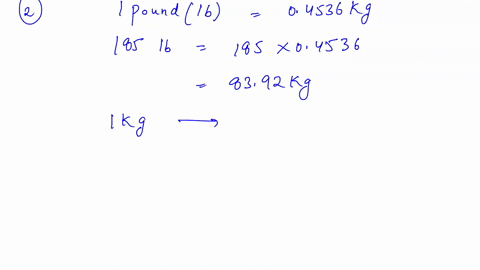 ② 1 pound (lb) = 0.4536 Kg
185 lb = 185 × 0.4536
= 83.92 Kg
1 Kg ⟶